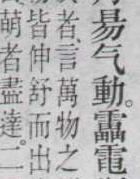 昜气動。靁電
者、言萬物之
皆伸舒而出
萌者盡達。二